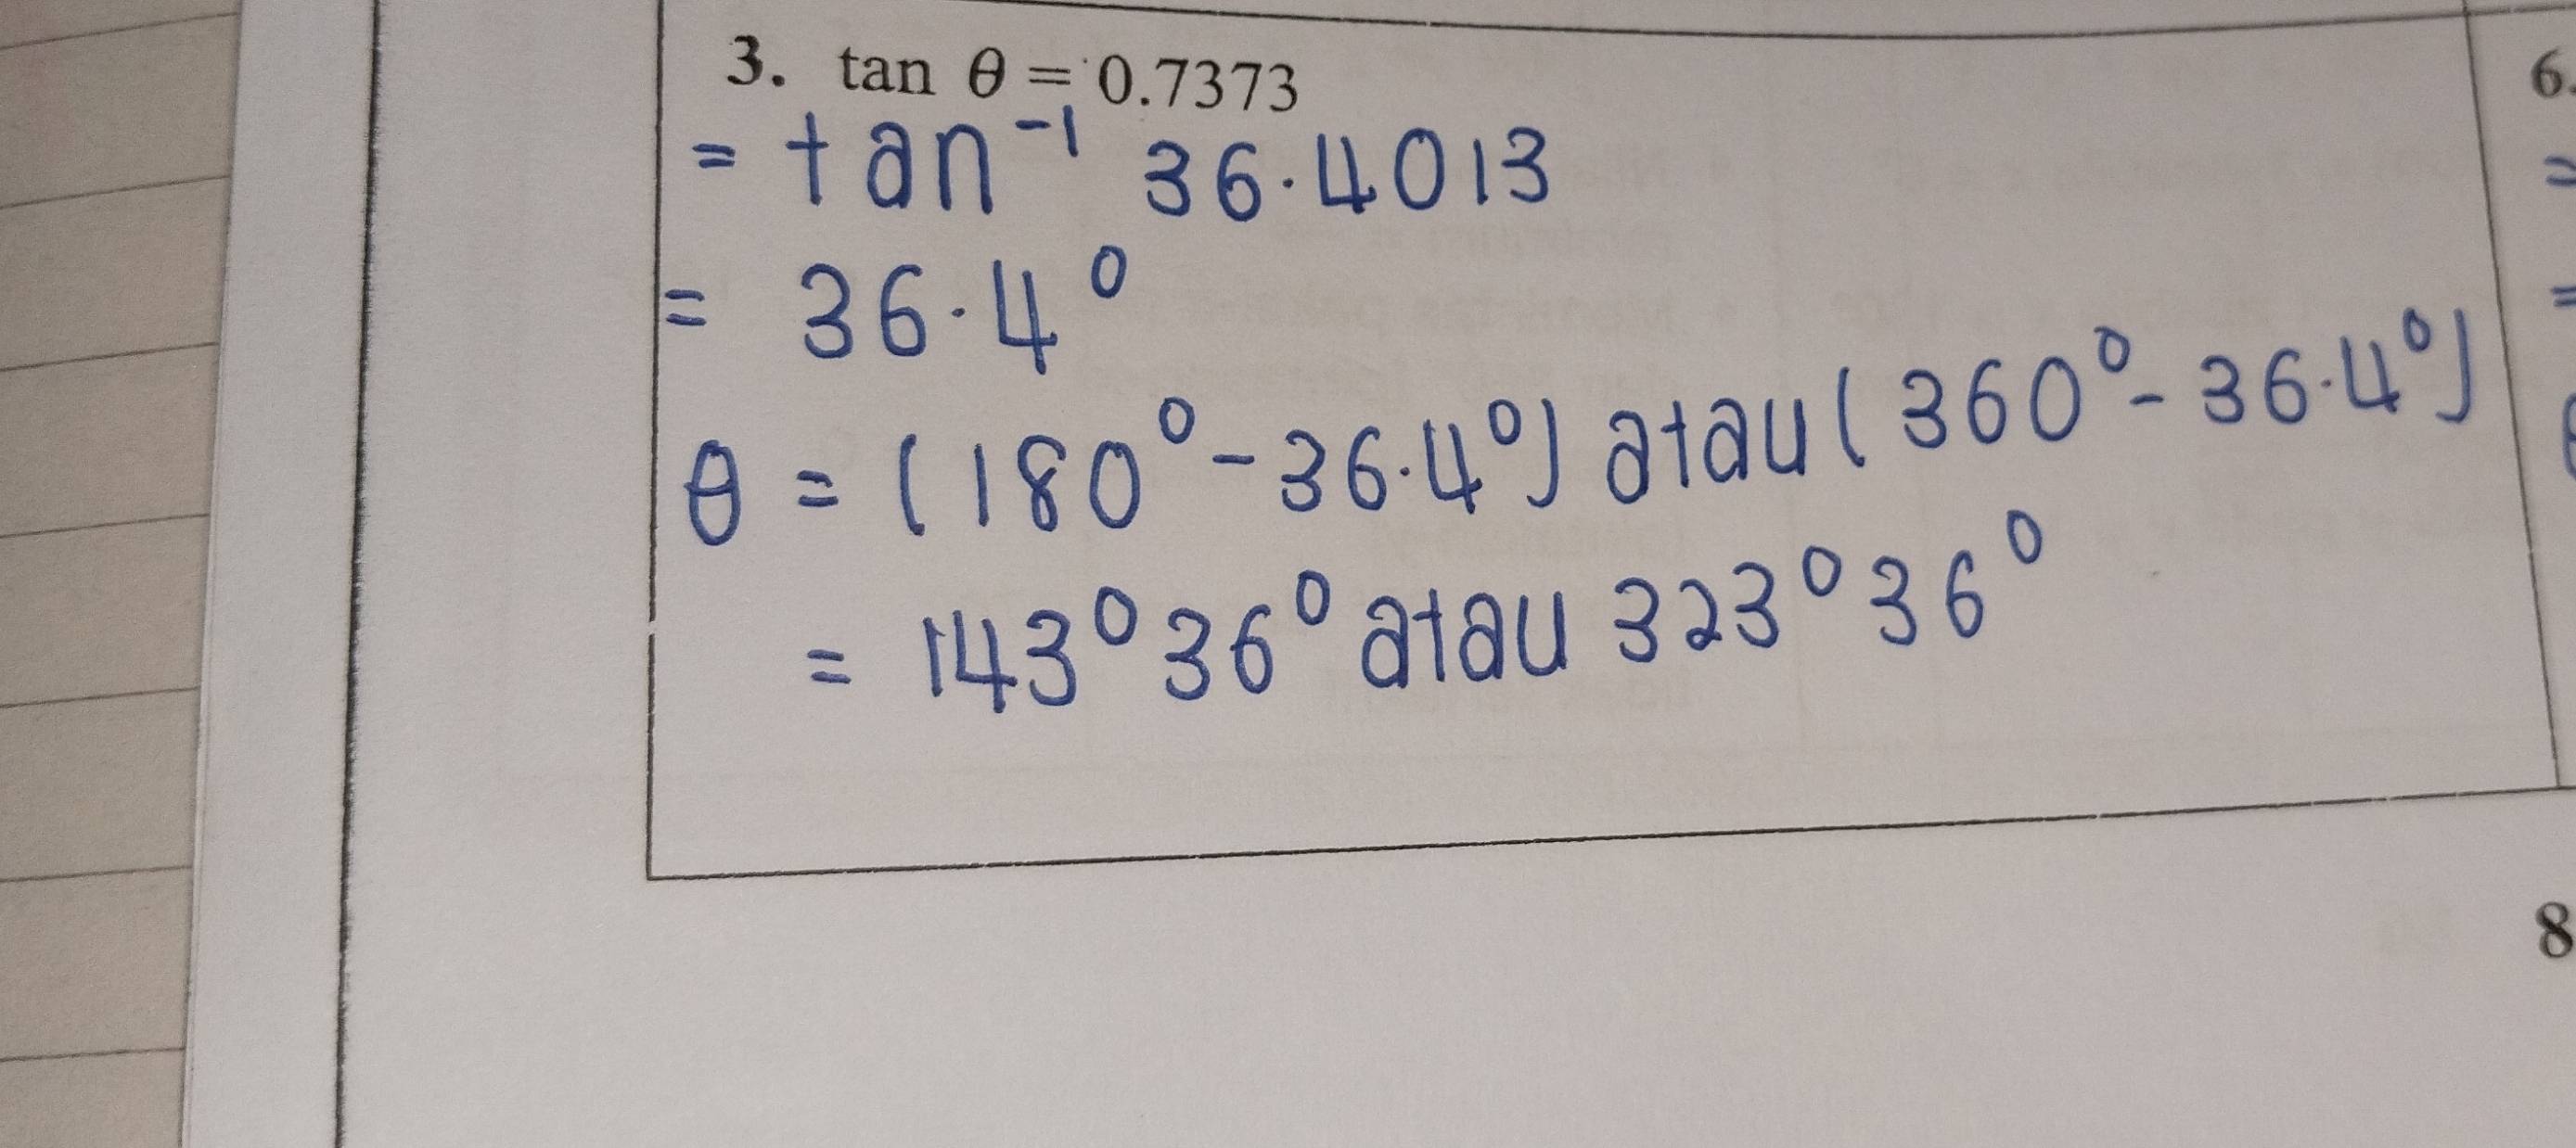 3. tan θ = 0.7373
= tan⁻¹ 36.4013
= 36.4°
θ = (180° - 36.4°) atau (360° - 36.4°)
= 143° 36° atau 323° 36°
6.
=
=
8